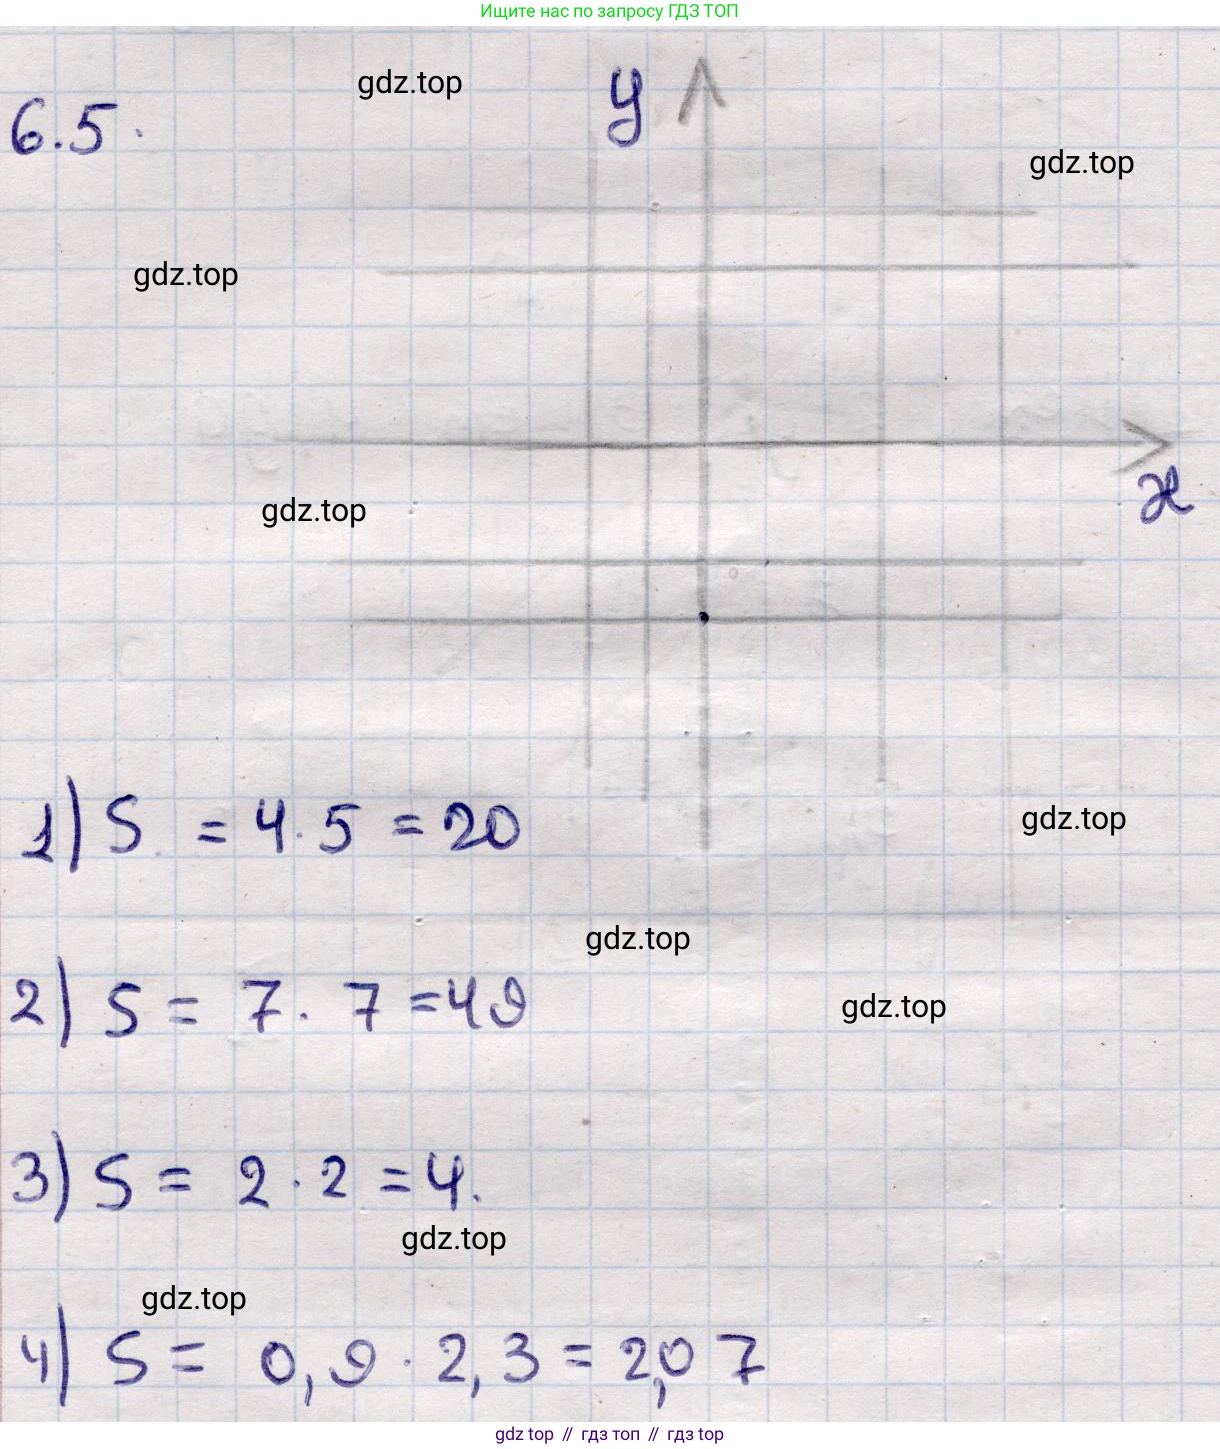 Ищите нас по запросу ГДЗ ТОП
gdz.top
y
6.5.
gdz.top
gdz.top
x
gdz.top
1) S = 4·5 = 20
gdz.top
gdz.top
2) S = 7·7 = 49
gdz.top
3) S = 2·2 = 4.
gdz.top
gdz.top
4) S = 0,9·2,3 = 2,07
gdz top // гдз топ // gdz top